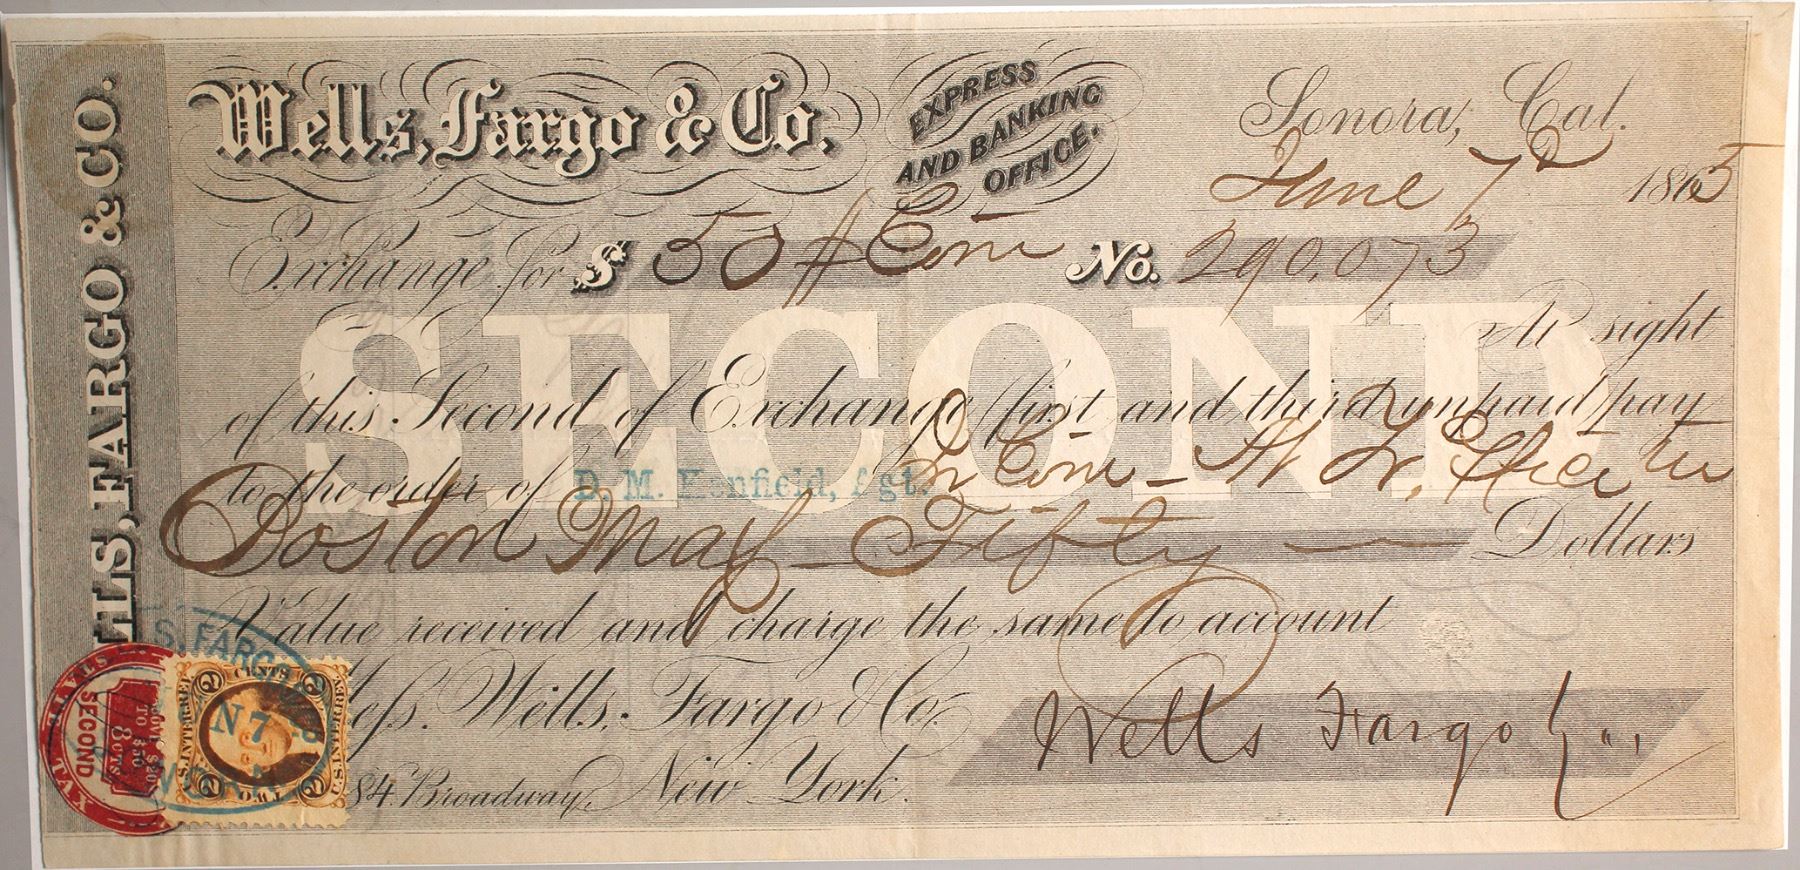 WELLS, FARGO & CO.
Wells, Fargo & Co.
EXPRESS
AND BANKING
OFFICE.
Sonora, Cal.
June 7th 1865
Exchange for $ 50 # Coin No. 290.073
SECOND
At sight
of this Second of Exchange (first and third unpaid) pay
to the order of D. M. Kenfield, Agt. Coin
Boston Mass Fifty Dollars
Value received and charge the same to account
Mess. Wells, Fargo & Co.
84 Broadway, New York.
Wells Fargo & Co.
SECOND
OVER $20
TO $50
8 CTS
TWO CENTS
U.S. INTER. REV.
U.S. INTER. REV.
2
2
2
2